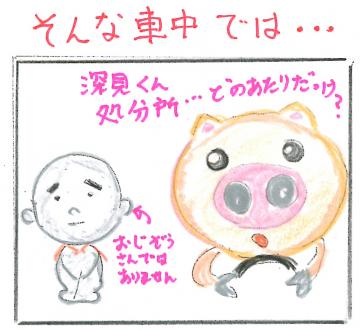 そんな車中では・・・
深見くん
処分所・・・どのあたりだっけ？
おじぞう
さんでは
ありません